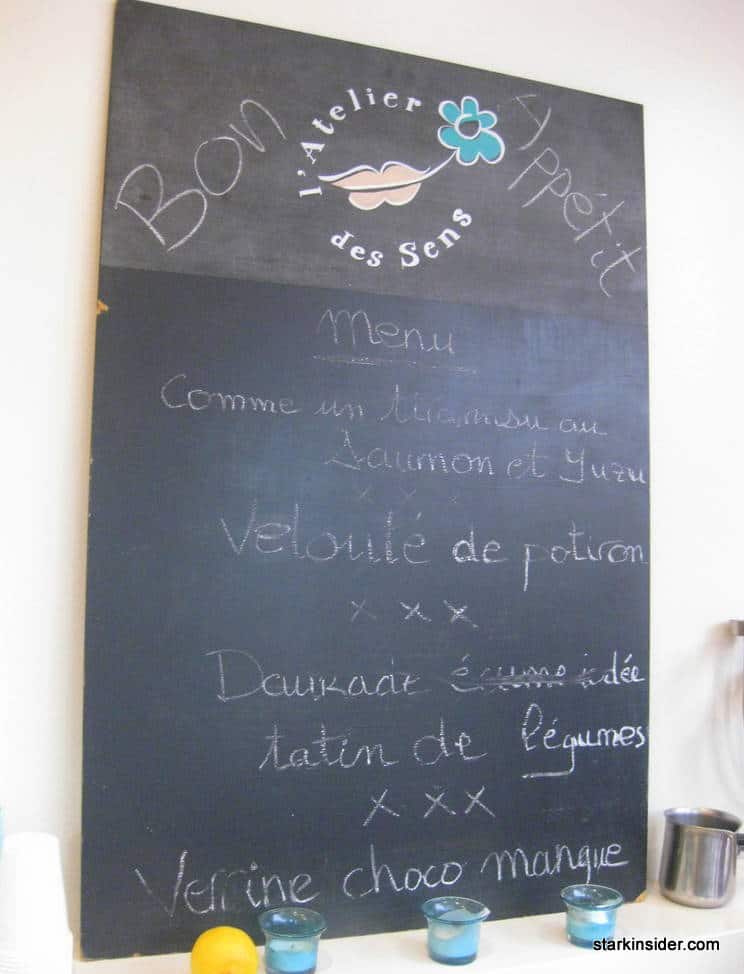 Bon Appétit
l'Atelier
des Sens
Menu
Comme un tiramisu au
Saumon et Yuzu
x x x
Velouté de potiron
x x x
Daurade idée
tatin de légumes
x x x
Verrine choco mangue
starkinsider.com